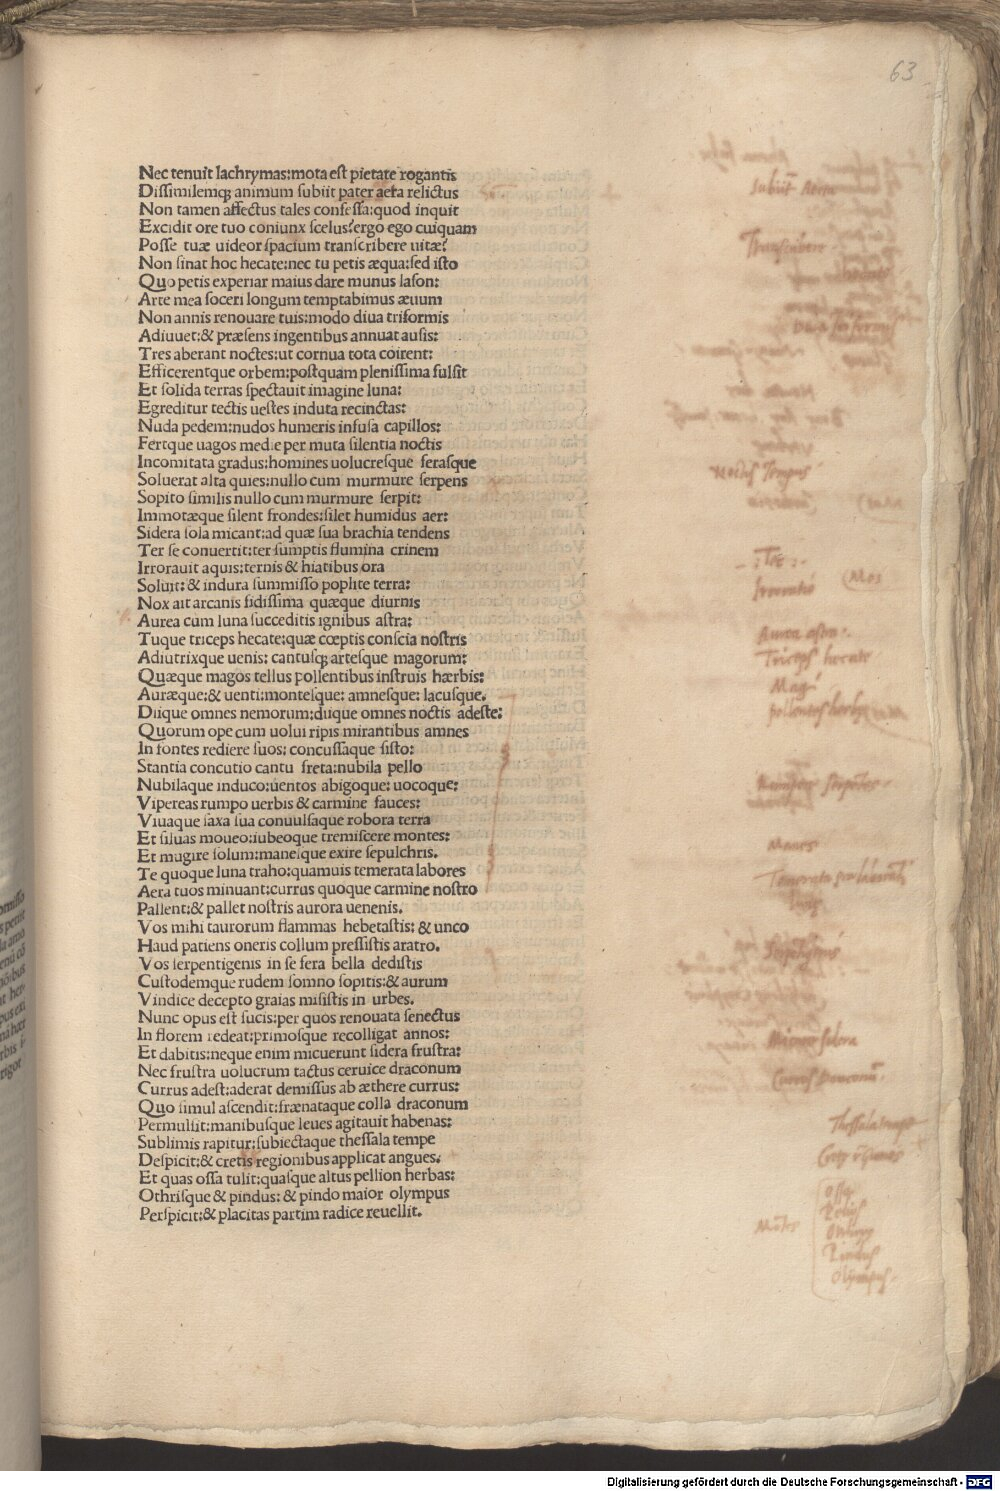 63
Nec tenuit lachrymas:mota est pietate rogantis
Dissimilemq; animum subiit pater aeta relictus
Non tamen affectus tales confessa:quod inquit
Excidit ore tuo coniunx scelus?ergo ego cuiquam
Posse tuæ uideor spacium transcribere uitæ?
Non sinat hoc hecate:nec tu petis æqua:sed isto
Quo petis experiar maius dare munus Iason:
Arte mea soceri longum temptabimus æuum
Non annis renouare tuis:modo diua triformis
Adiuuet:& præsens ingentibus annuat ausis:
Tres aberant noctes:ut cornua tota coirent:
Efficerentque orbem:postquam plenissima fulsit
Et solida terras spectauit imagine luna:
Egreditur tectis uestes induta recinctas:
Nuda pedem:nudos humeris infusa capillos:
Fertque uagos mediæ per muta silentia noctis
Incomitata gradus:homines uolucresque ferasque
Soluerat alta quies:nullo cum murmure serpens
Sopito similis nullo cum murmure serpit:
Immotæque silent frondes:silet humidus aer:
Sidera sola micant:ad quæ sua brachia tendens
Ter se conuertit:ter sumptis flumina crinem
Irrorauit aquis:ternis & hiatibus ora
Soluit: & indura summisso poplite terra:
Nox ait arcanis fidissima quæque diurnis
Aurea cum luna succeditis ignibus astra:
Tuque triceps hecate:quæ cœptis conscia nostris
Adiutrixque uenis: cantusq; artesque magorum:
Quæque magos tellus pollentibus instruis hærbis:
Auræque:& uenti:montesque: amnesque: lacusque.
Diique omnes nemorum:diique omnes noctis adeste:
Quorum ope cum uolui ripis mirantibus amnes
In fontes rediere suos: concussaque sisto:
Stantia concutio cantu freta:nubila pello
Nubilaque induco:uentos abigoque: uocoque:
Vipereas rumpo uerbis & carmine fauces:
Viuaque saxa sua conuulsaque robora terra
Et siluas moueo:iubeoque tremiscere montes:
Et mugire solum:manesque exire sepulchris.
Te quoque luna traho:quamuis temerata labores
Aera tuos minuant:currus quoque carmine nostro
Pallent:& pallet nostris aurora uenenis.
Vos mihi taurorum flammas hebetastis: & unco
Haud patiens oneris collum pressistis aratro.
Vos serpentigenis in se fera bella dedistis
Custodemque rudem somno sopitis:& aurum
Vindice decepto graias misistis in urbes.
Nunc opus est sucis:per quos renouata senectus
In florem redeat:primosque recolligat annos:
Et dabitis:neque enim micuerunt sidera frustra:
Nec frustra uolucrum tactus ceruice draconum
Currus adest:aderat demissus ab æthere currus:
Quo simul ascendit:frænataque colla draconum
Permulsit:manibusque leues agitauit habenas:
Sublimis rapitur:subiectaque thessala tempe
Despicit:& cretis regionibus applicat angues.
Et quas ossa tulit:quasque altus pellion herbas:
Othrisque & pindus: & pindo maior olympus
Perspicit:& placitas partim radice reuellit.
Triceps hecate
Digitalisierung gefördert durch die Deutsche Forschungsgemeinschaft - DFG